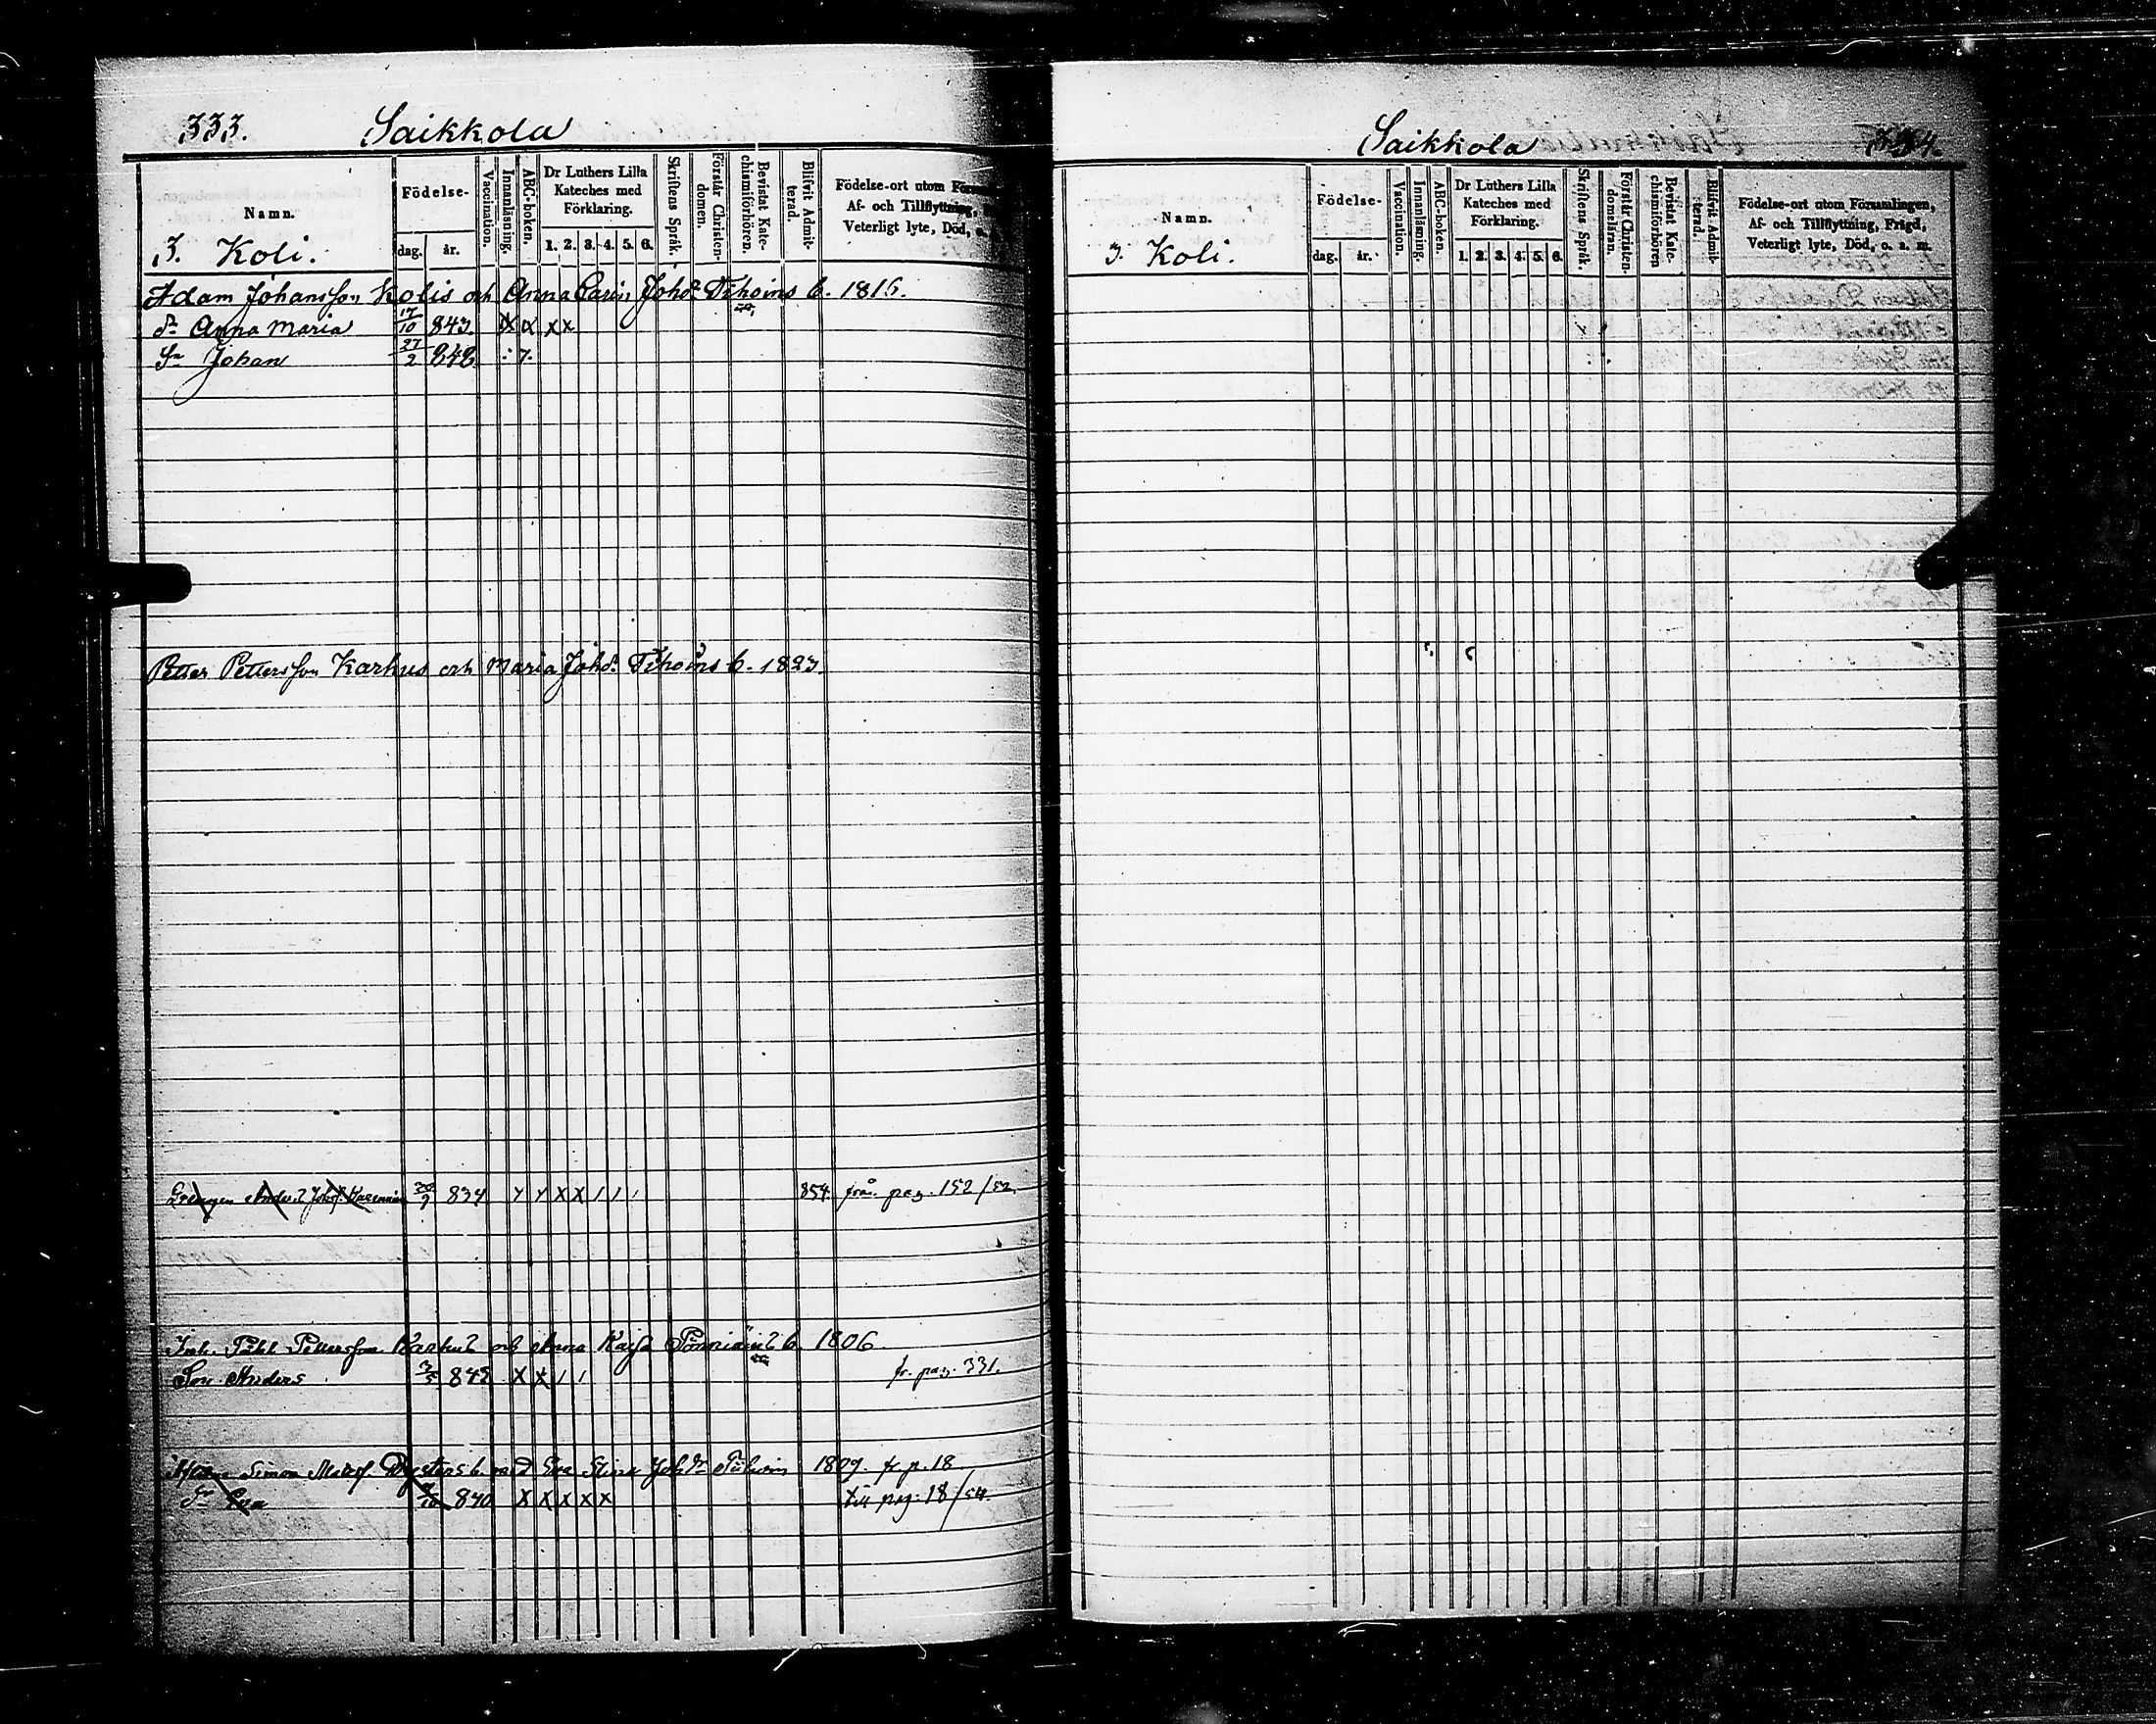 333. Saikkola
Namn.
Födelse-
dag. år.
Vaccination.
Innanläsning.
ABC-boken.
Dr Luthers Lilla
Kateches med
Förklaring.
1. 2. 3. 4. 5. 6.
Skriftens Språk.
Förstår Christen-
domen.
Bevistat Kate-
chismiförhören.
Blifvit Admit-
terad.
Födelse-ort utom
Af- och Tillflyttning,
Veterligt lyte, Död,
3. Koli.
Adam Johansson Kolis och Anna Carin Johd. Tihoins b. 1816.
dr Anna Maria 17/10 843. X X x x
Sn Johan 27/2 848.
Petter Pettersson Karhus och Maria Johd. Tihoins b. 1823.
20/9 834 X X 1 1 1 854. från pag. 152/52.
Pettersson Karhus och Anna Kajsa b. 1806
Son Anders 3/5 842 X X 1 1 fr. pag. 331.
Simon Matsf. b. med Eva Stina Johdr 1809. fr p. 18
dr Eva 840 X X X X X till pag. 18/54.
Saikkola 334.
Namn.
Födelse-
dag. år.
Vaccination.
Innanläsning.
ABC-boken.
Dr Luthers Lilla
Kateches med
Förklaring.
1. 2. 3. 4. 5. 6.
Skriftens Språk.
Förstår Christen-
domsläran.
Bevistat Kate-
chismiförhören
Blifvit Admit-
terad.
Födelse-ort utom Församlingen,
Af- och Tillflyttning, Frägd,
Veterligt lyte, Död, o. s. m.
3. Koli.